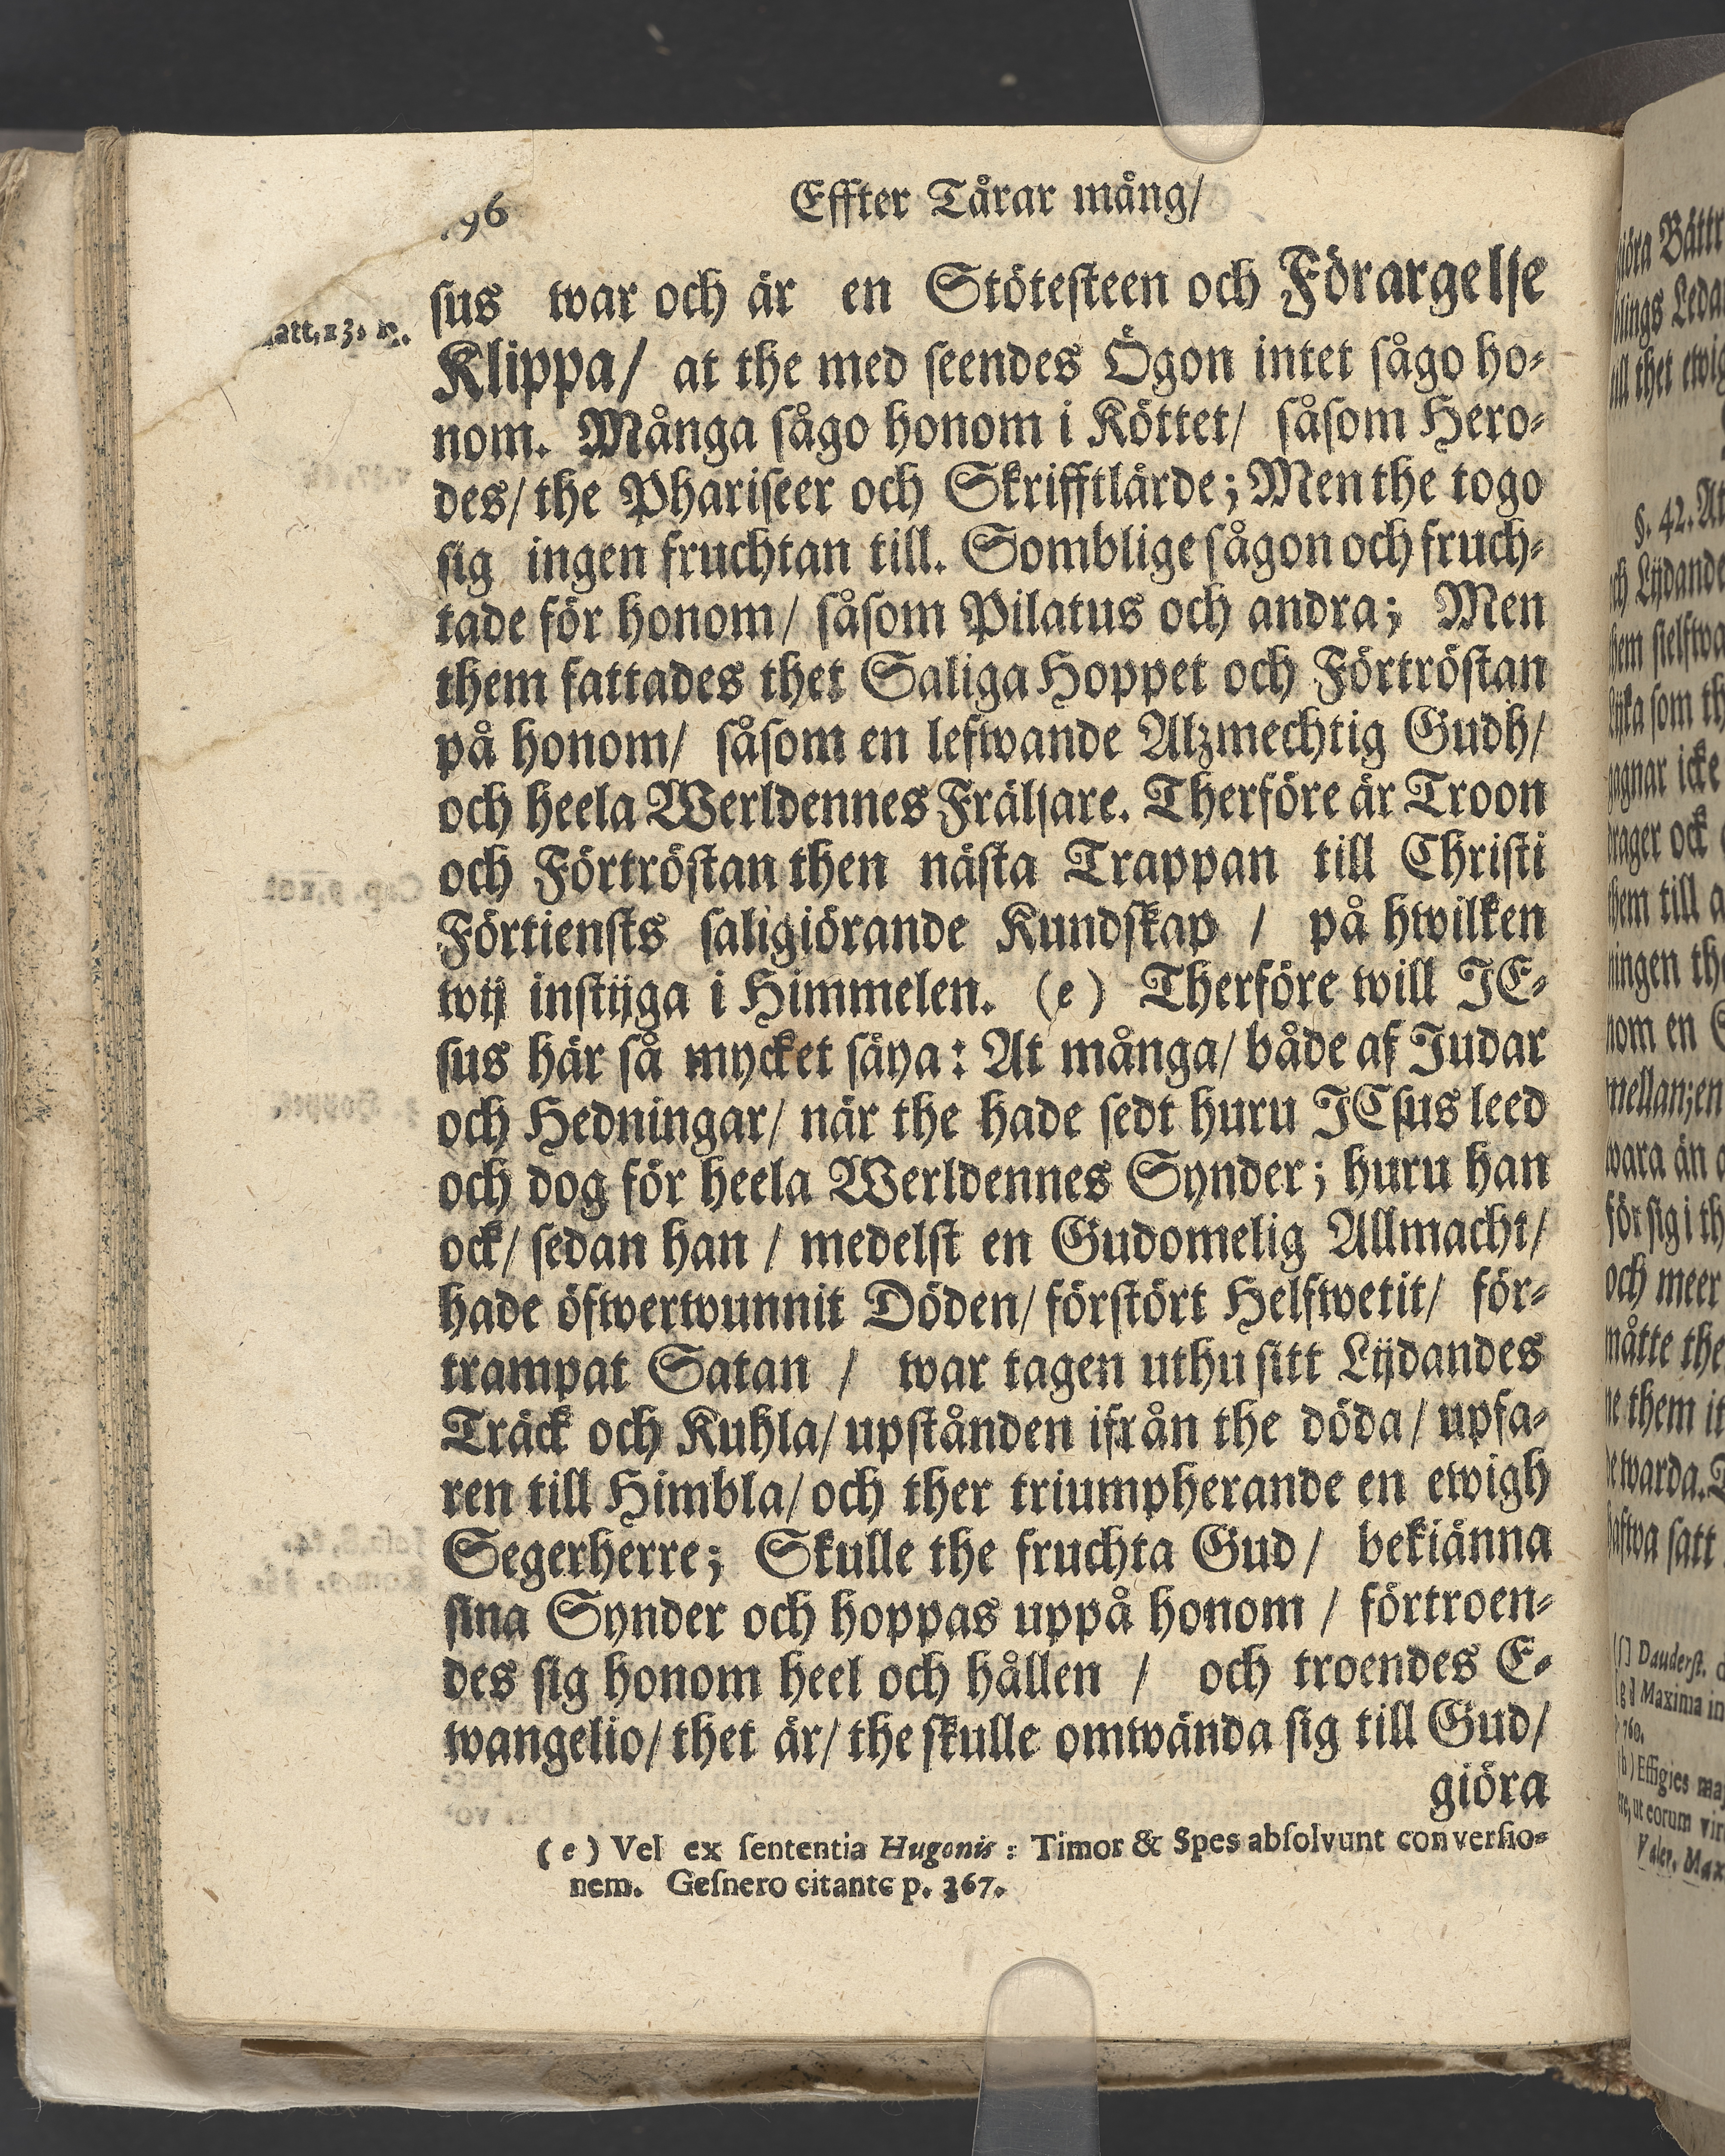 96 Effter Tårar mång/
sus war och är en Stötesteen och Förargelse
att. 13.
Klippa/ at the med seendes Ögon intet sågo ho-
nom. Många sågo honom i Köttet/ såsom Hero-
des/ the Phariseer och Skrifftlärde; Men the togo
sig ingen fruchtan till. Somblige sågon och fruch-
tade för honom/ såsom Pilatus och andra; Men
them fattades thet Saliga Hoppet och Förtröstan
på honom/ såsom en lefwande Alzmechtig Gudh/
och heela Werldennes Frälsare. Therföre är Troon
och Förtröstan then nästa Trappan till Christi
Förtiensts saligiörande Kundskap / på hwilken
wij instijga i Himmelen. (e) Therföre will JE-
sus här så mycket säya: At många/ både af Judar
och Hedningar/ när the hade sedt huru JEsus leed
och dog för heela Werldennes Synder; huru han
ock/ sedan han / medelst en Gudomelig Allmacht/
hade öfwerwunnit Döden/ förstört Helfwetit/ för-
trampat Satan / war tagen uthu sitt Lijdandes
Träck och Kuhla/ upstånden ifrån the döda/ upfa-
ren till Himbla/ och ther triumpherande en ewigh
Segerherre; Skulle the fruchta Gud/ bekiänna
sina Synder och hoppas uppå honom / förtroen-
des sig honom heel och hållen / och troendes E-
wangelio/ thet är/ the skulle omwända sig till Gud/
giöra
(e) Vel ex sententia Hugonis: Timor & Spes absolvunt conversio-
nem. Gesnero citante p. 367.